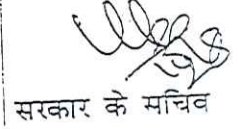 सरकार के सचिव